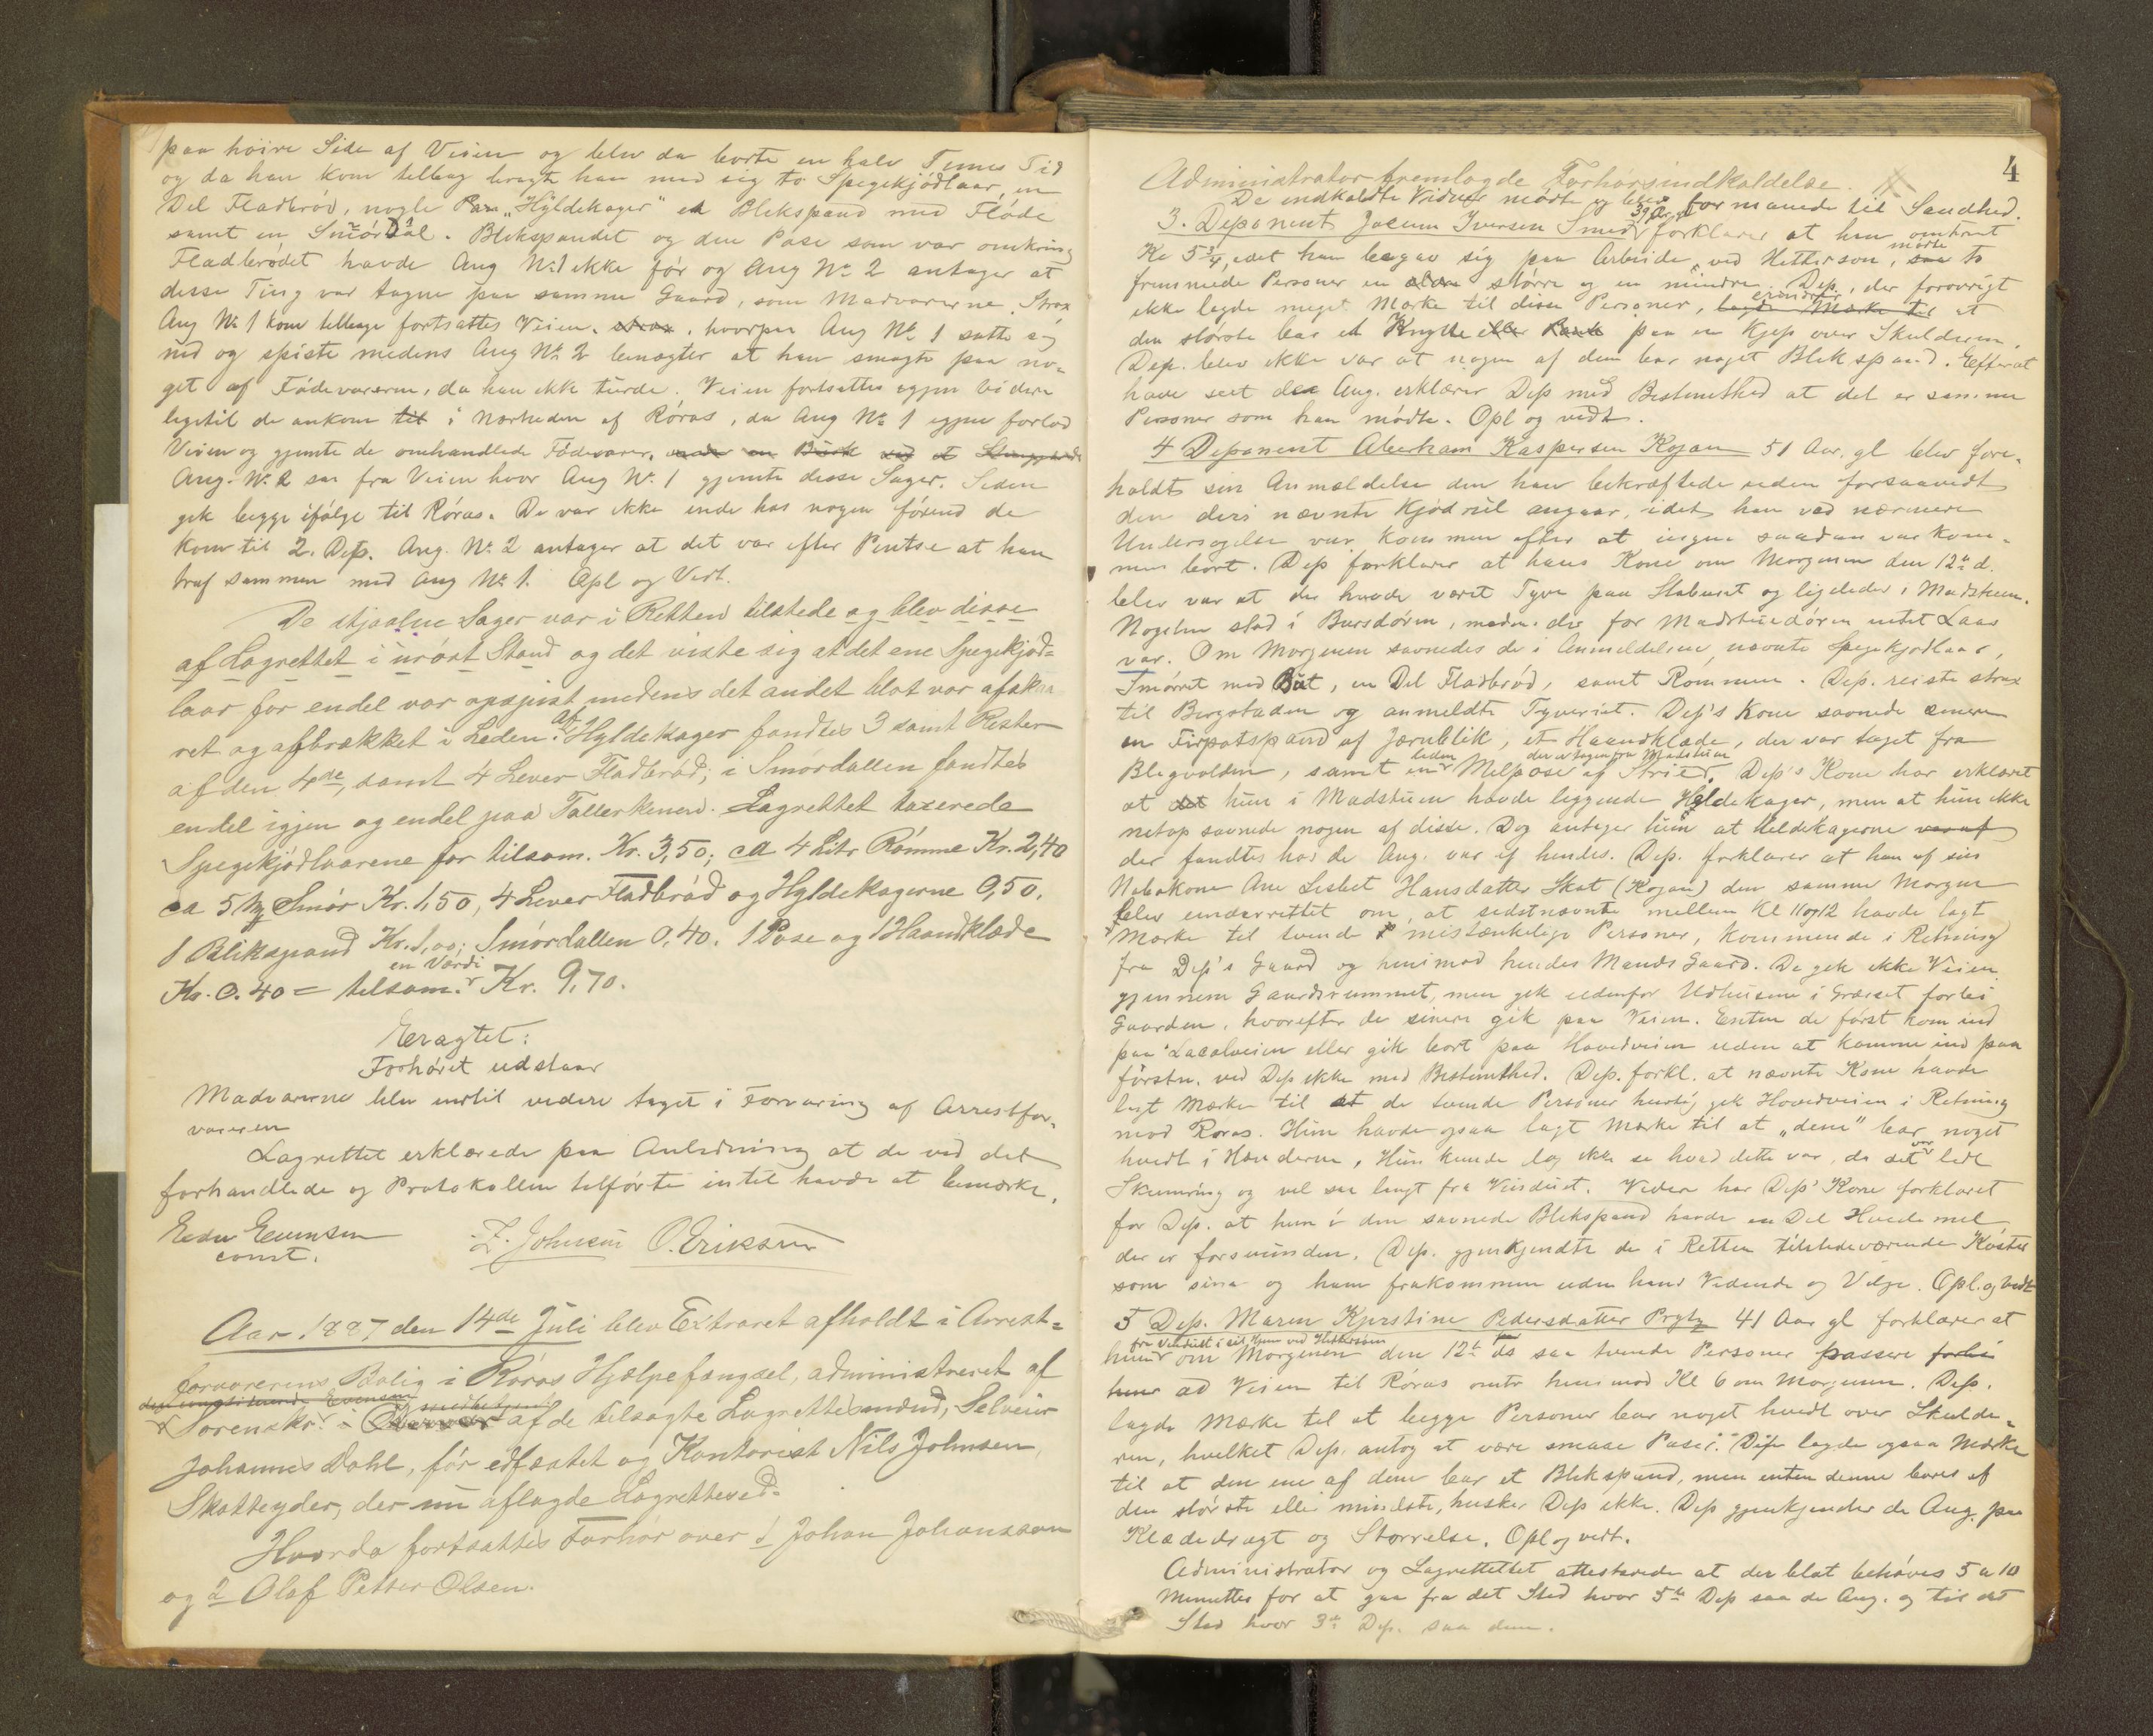 paa høire Side af Veien og blev da borte en halv Times Tid
og da han kom tilbag bragte han med sig to Spegekjödlaar, en
Del Fladbröd, nogle Par "Hyldekager" et Blekspand med Flöde
samt en Smördal. Blekspandet og den Pose som var omkring
Fladbrödet havde Ang No 1 ikke för og Ang No 2 antager at
disse Ting var tagne paa samme Gaard, som Madvarerne. Strax
Ang No 1 kom tilbage fortsattes Veien, strax, hvorpaa Ang No 1 satte sig
ned og spiste medens Ang No 2 benægter at han smagte paa no-
get af Födevarerne, da han ikke turde. Veien fortsattes igjen videre
ligetil de ankom til i Nærheden af Röras, da Ang No 1 igjen forlod
Veien og gjemte de omhandlede Födevarer, under en Busk ved et
Ang. No 2 saa fra Veien hvor Ang No 1 gjemte disse Sager. Siden
gik begge ifölge til Röras. De var ikke inde hos nogen förend de
kom til 2. Dep. Ang. No 2 antager at det var efter Pintse at han
traf sammen med Ang No 1. Opl og Vedt.
De stjaalne Sager var i Retten tilstede og blev disse
af Lagrettet i urört Stand og det viste sig at det ene Spegekjöd-
laar for endel var opspist medens det andet blot var afskaa
ret og afbrækket i Leden. Af Hyldekager fandtes 3 samt Rester
af den 4de, samt 4 Lever Fladbröd; i Smördallen fandtes
endel igjen og endel paa Tallerkenen. Lagrettet taxerede
Spegekjödlaarene for tilsam. Kr. 3,50; ca 4 Litr Römme Kr. 2,40
ca 5 Smör Kr. 1,50, 4 Lever Fladbröd og Hyldekagerne 0,50.
1 Blikspand Kr. 1,00; Smördallen 0,40. 1 Pose og 1 Haandklæde
Kr. 0.40 = tilsam. en Værdi Kr. 9,70.
Eragtet:
Forhøret udstaar
Madvarerne blev indtil videre taget i Forvaring af Arrestfor-
vareren
Lagrettet erklærede paa Anledning at de ved det
forhandlede og Protokollen tilförte intet havde at bemærke.
Evensen Z. Johnsen O. Eriksen
const.
Aar 1887 den 14de Juli blev Extraret afholdt i Arrest-
forvarerens Bolig i Röros Hjælpefængsel, administreret af
den ungtiltrende Evensen
Sorenskr. i Overvær af de tilsagte Lagrettesmænd, Selveier
Johannes Dahl, för edfæstet og Kontorist Nils Johnsen
Skatteyder, der nu aflagde Lagretteed.
Hvorda fortsattes Forhör over 1 Johan Johansson
og 2 Olaf Petter Olsen.
4
Administrator fremlagde Forhörsindkaldelse.
De indkaldte Vidner mödte og blev formanede til Sandhed.
3. Deponent Jocum Iversen Smed 39 Aar forklarer at han omtrent
Kl 5 3/4, idet han begav sig paa Arbeide ved Hittersön, mödte saa to
fremmede Personer en större og en mindre. Dep., der forövrigt
ikke lagde meget Mærke til disse Personer, erindrer lagde Mærke til at
den störste bar et Knytte eller paa en Kjep over Skulderen.
Dep. blev ikke var at nogen af dem bar noget Blekspand. Efterat
have seet de Ang. erklærer Dep med Bestemthed at det er samme
Personer som han mödte. Opl og vedt.
4 Deponent Abraham Kaspersen Kojan 51 Aar. gl blev fore-
holdt sin Anmældelse den han bekræftede uden forsaavidt
den deri nævnte Kjödrul angaar, idet han ved nærmere
Undersögelse var kommen efter at ingen saadan var kom-
men bort. Dep forklarer at hans Kone om Morgenen den 12te d.
blev var at der havde været Tyve paa Staburet og ligeledes i Madstuen.
Nögelen stod i Bursdören, medens der for Madstuedören intet Laas
var. Om Morgenen savnedes de i Anmeldelsen nævnte Spegekjödlaar,
Smörret med But, en Del Fladbröd, samt Römmen. Dep. reiste strax
til Bergstaden og anmeldte Tyveriet. Dep's Kone savnede senere
en Firpotspand af Jærnblik, et Haandklæde, der var taget fra
Blegvolden, samt en liden Melpose af Strie. der er tagen fra Madstuen Dep's Kone har erklæret
at det hun i Madstuen havde liggende Hyldekager, men at hun ikke
netop savnede nogen af disse. Dog antager hun at Heldekagerne var af
der fandtes hos de Ang. var af hendes. Dep. forklarer at han af sin
Nabokone Ane Lisbet Hansdatter Skot (Kojan) den samme Morgen
blev underrettet om, at sidstnævnte mellem Kl 11 og 12 havde lagt
Mærke til tvende P mistænkelige Personer, kommende i Retning
fra Dep's Gaard og henimod hendes Mands Gaard. De gik ikke Veien
gjennem Gaardsrummet, men gik udenfor Udhusene i Græset forbi
Gaarden, hvorefter de sinere gik paa Veien. Enten de först kom ind
paa Localveien eller gik bort paa Hovedveien uden at komme ind paa
förstn. ved Dep ikke med Bestemthed. Dep. forkl. at nævnte Kone havde
lagt Mærke til at de tvende Personer hurtig gik Hovedveien i Retning
mod Röros. Hun havde ogsaa lagt Mærke til at "dem" bar noget
hvidt i Hænderne, Hun kunde dog ikke se hvad dette var, da det var lidt
Skumring og vel saa langt fra Vinduet. Videre har Dep' Kone forklaret
for Dep. at hun i den savnede Blekspand havde en Del Hvedemel
der er forsvunden. Dep. gjenkjendte de i Retten tilstedeværende Koster
som sine og ham frakommen uden hans Vidende og Vilje. Opl. og vedt
5 Dep. Maren Kjerstine Pedersdatter Prytz 41 Aar gl forklarer at
hun fra Vinduet i sit Hjem ved Hittersöen om Morgenen den 12te ds saa tvende Personer passere forbi
hun ad Veien til Röros omtr henimod Kl 6 om Morgenen. Dep.
lagde Mærke til at begge Personer bar noget hvidt over Skulde-
ren, hvilket Dep. antog at være smaae Poser. Dep lagde ogsaa Mærke
til at den ene af dem bar et Blekspand, men enten denne bares af
den störste eller mindste, husker Dep ikke. Dep gjenkjender de Ang. paa
Klædedragt og Störrelse. Opl og vedt.
Administrator og Lagrettet attesterede at der blot behöves 5 a 10
Minutter for at gaa fra det Sted hvor 5te Dep saa de Ang. og til det
Sted hvor 3de Dep. saa dem.